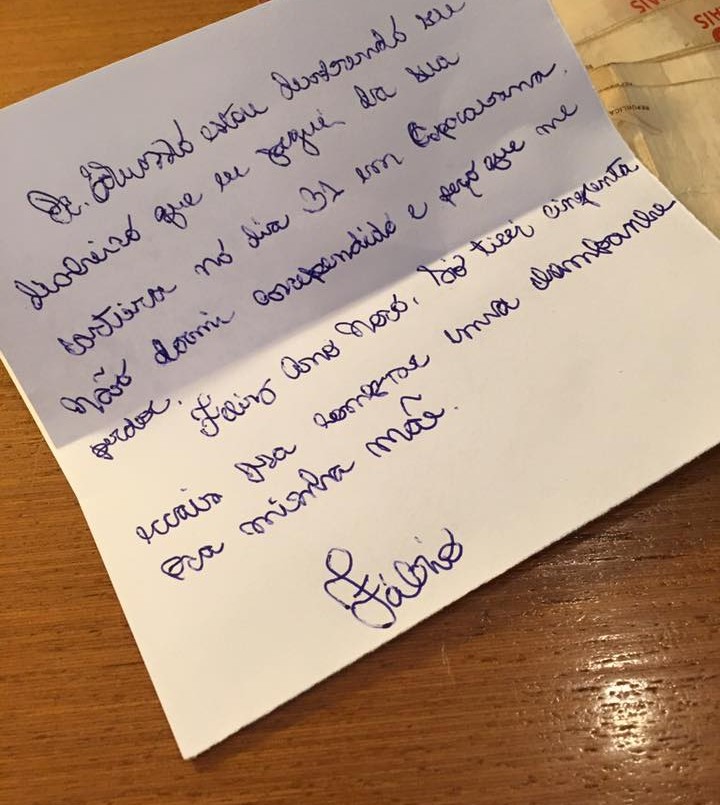 Dr. Eduardo estou devolvendo seu
dinheiro que eu peguei da sua
carteira no dia 31 em Copacabana.
Não dormi arrependido e peço que me
perdoe. Feliz Ano Novo. Só tirei cinquenta
reais pra comprar uma champanhe
pra minha mãe.
Fábio
REPÚBLICA
AIS